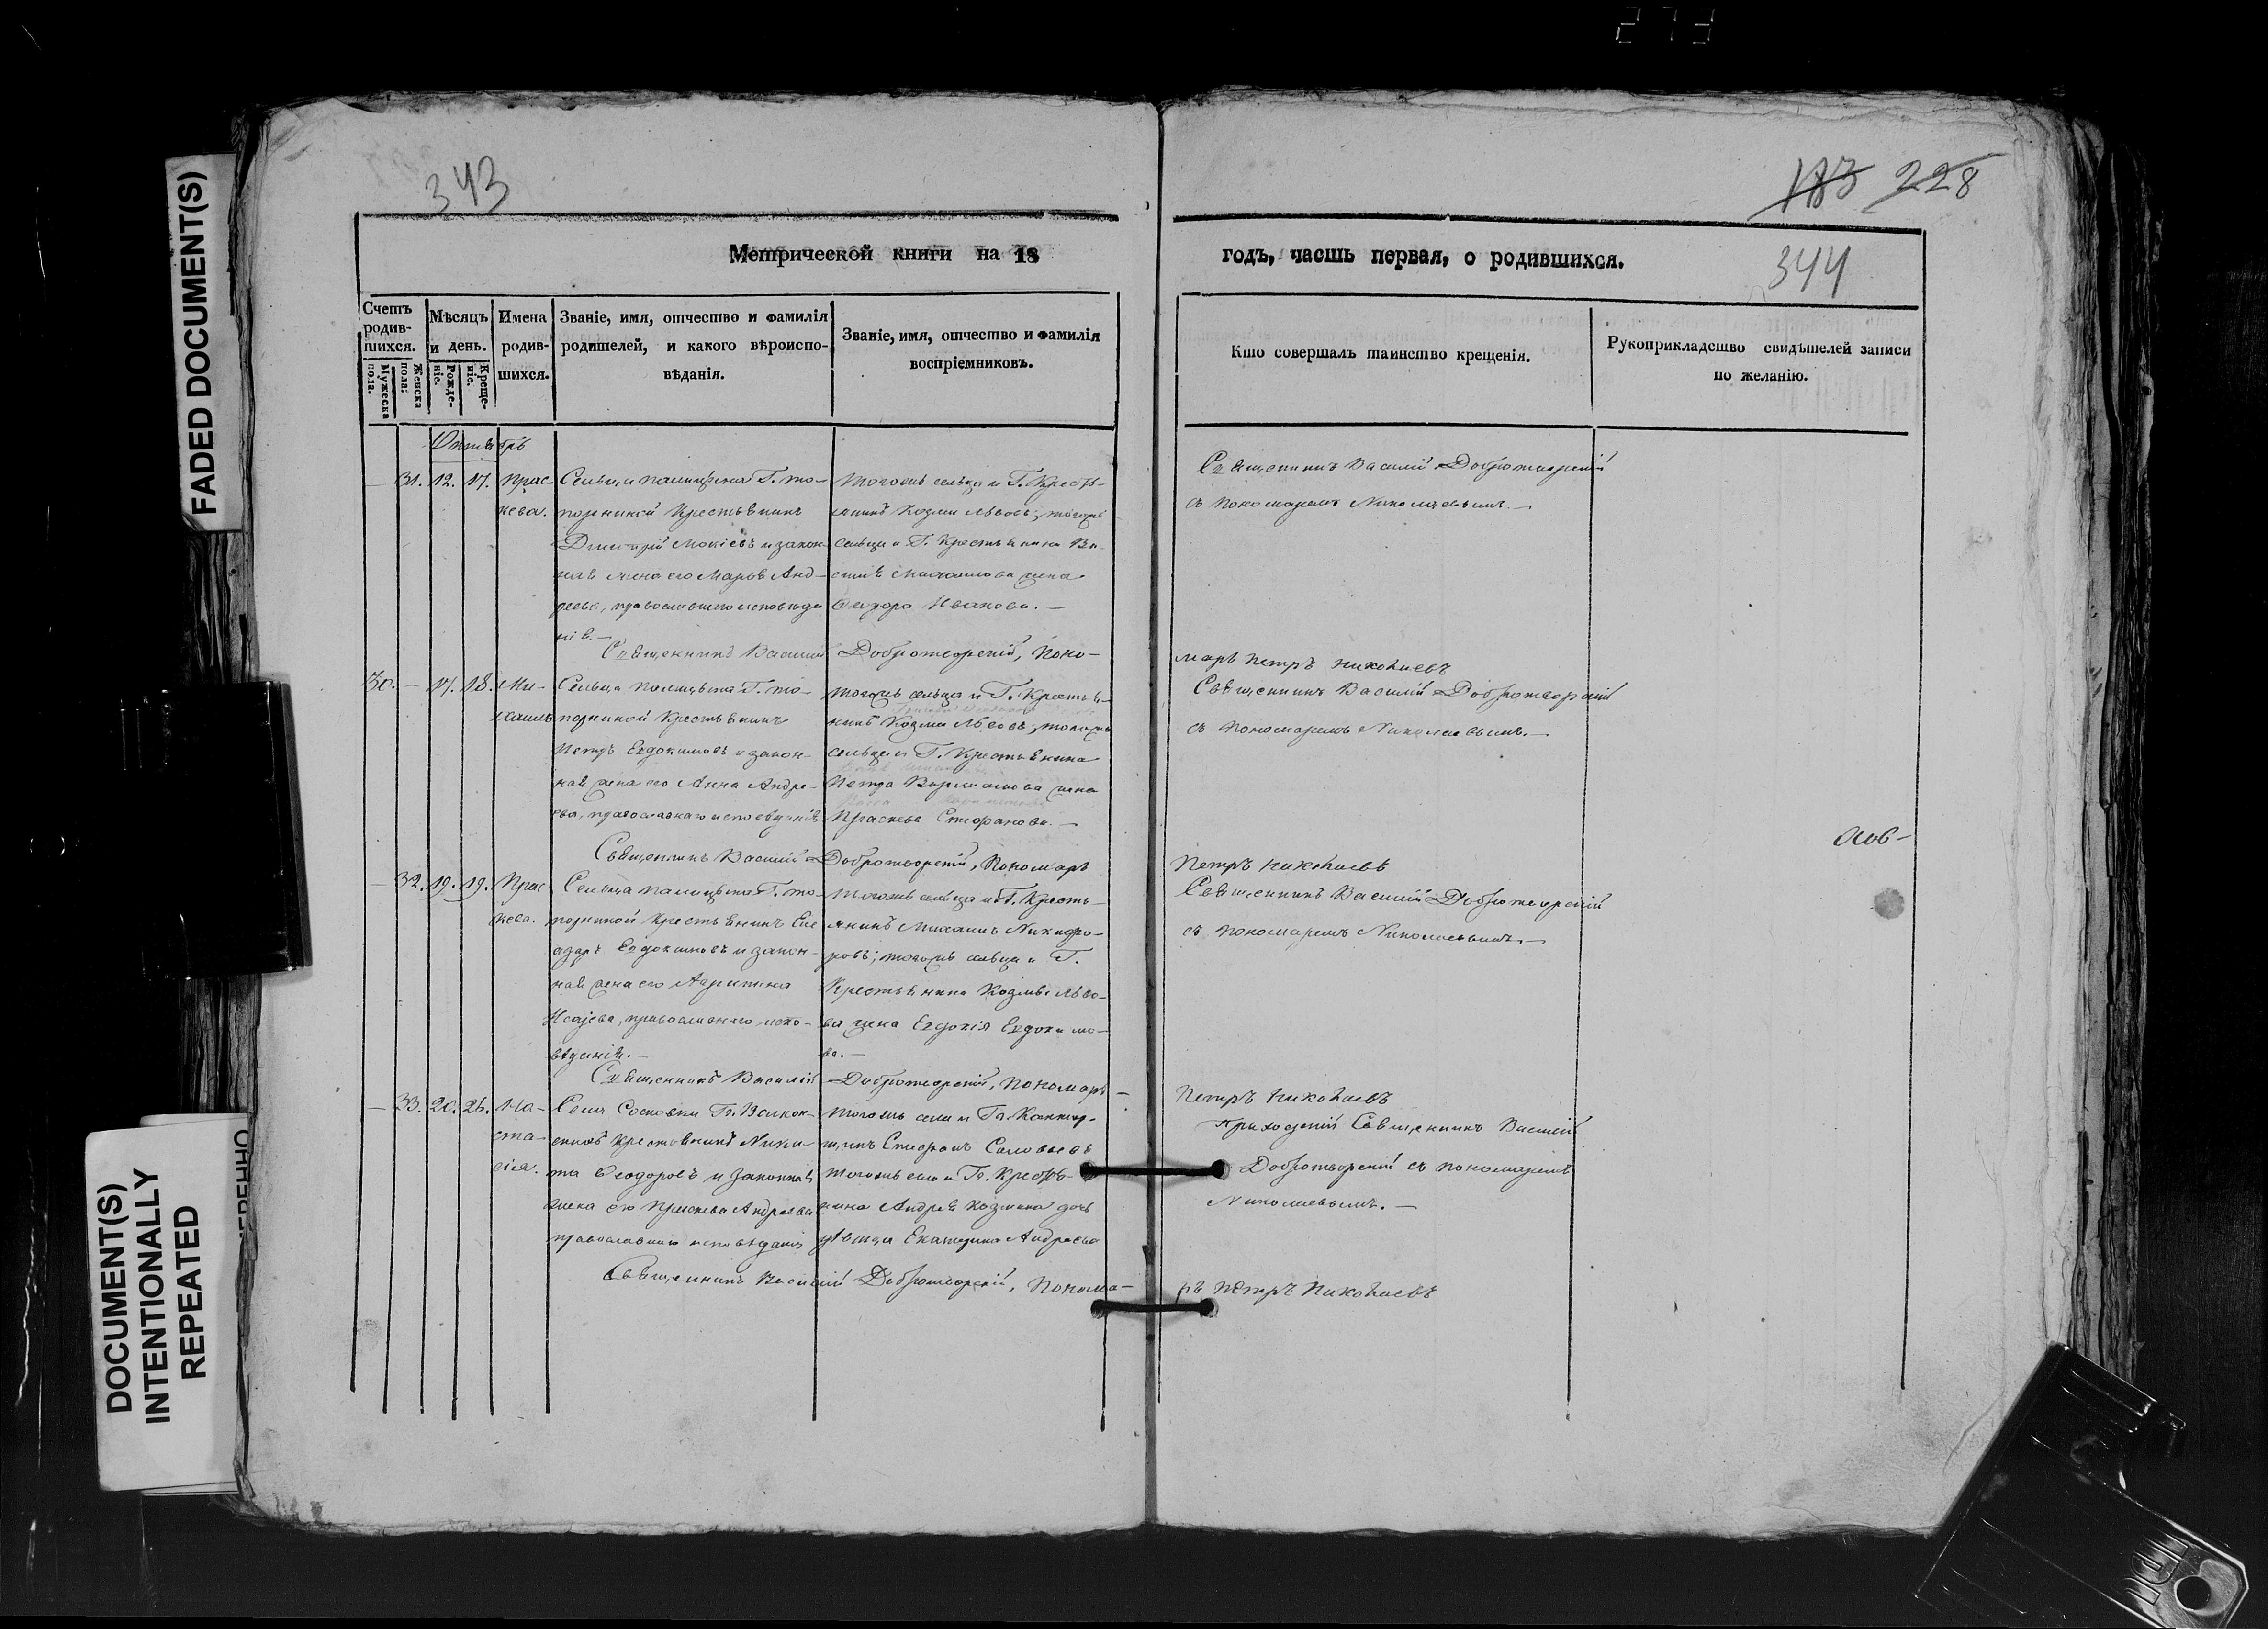 273
FADED DOCUMENT(S)
DOCUMENT(S)
INTENTIONALLY
REPEATED
343
183 228
344
Метрической книги на 18
годъ, часть первая, о родившихся.
Счетъ родившихся.
Мужеска пола.
Женска пола.
Мѣсяцъ и день.
Рожденіе.
Крещеніе.
Имена родившихся.
Званіе, имя, отчество и фамилія родителей, и какого вѣроисповѣданія.
Званіе, имя, отчество и фамилія воспріемниковъ.
Кто совершалъ таинство крещенія.
Рукоприкладство свидѣтелей записи по желанію.
31. 12. 17. Прас-
кева.
Крестьянинъ
Дмитрій Мокіевъ и закон-
ная жена его Марья Анд-
реева, православнаго исповѣда
нія.—
тогожъ сельца и Г. Кресть-
янинъ Козма Львовъ; тогожъ
сельца и Г. Крестьянина Ва-
силія Михайлова жена
Ѳедора Иванова.—
Священникъ Василій Добротворскій
съ пономаремъ Николаевымъ.—
Священникъ Василій Добротворскій, Поно-
марь Петръ Николаевъ
30. — 17. 18. Ми-
хаилъ
Крестьянинъ
Петръ Евдокимовъ и закон-
ная жена его Анна Андре-
ева, православнаго исповѣданія
тогожъ сельца и Г. Крестья-
нинъ Козма Львовъ; тогожъ
сельца и Г. Крестьянина
Петра жена
Праскева Стефанова.—
Священникъ Василій Добротворскій
съ пономаремъ Николаевымъ.—
Священникъ Василій Добротворскій, Пономарь
Петръ Николаевъ
— 32. 19. 19. Прас
кева.
Крестьянинъ Еле
азаръ Евдокимовъ и закон-
ная жена его
Исаева, православнаго испо-
вѣданія.—
тогожъ сельца и Г. Кресть-
янинъ Михаилъ Никифо-
ровъ; тогожъ сельца и Г.
Крестьянина Козмы Льво-
ва жена Евдокія Евдокимо-
ва.—
Священникъ Василій Добротворскій
съ пономаремъ Николаевымъ.—
Священникъ Василій Добротворскій, Пономарь
Петръ Николаевъ
— 33. 20. 26. На-
ста-
сія.
Села Сосновки
крестьянинъ Ники-
та Ѳеодоровъ и законная
жена его Праскева Андреева
православнаго исповѣданія
тогожъ села и
Стефанъ Соловьевъ
тогожъ села и Гп. Кресть-
янина Андрея Козмина дочь
дѣвица Екатерина Андреева
Приходскій Священникъ Василій
Добротворскій съ пономаремъ
Николаевымъ.—
Священникъ Василій Добротворскій, Понома-
рь Петръ Николаевъ